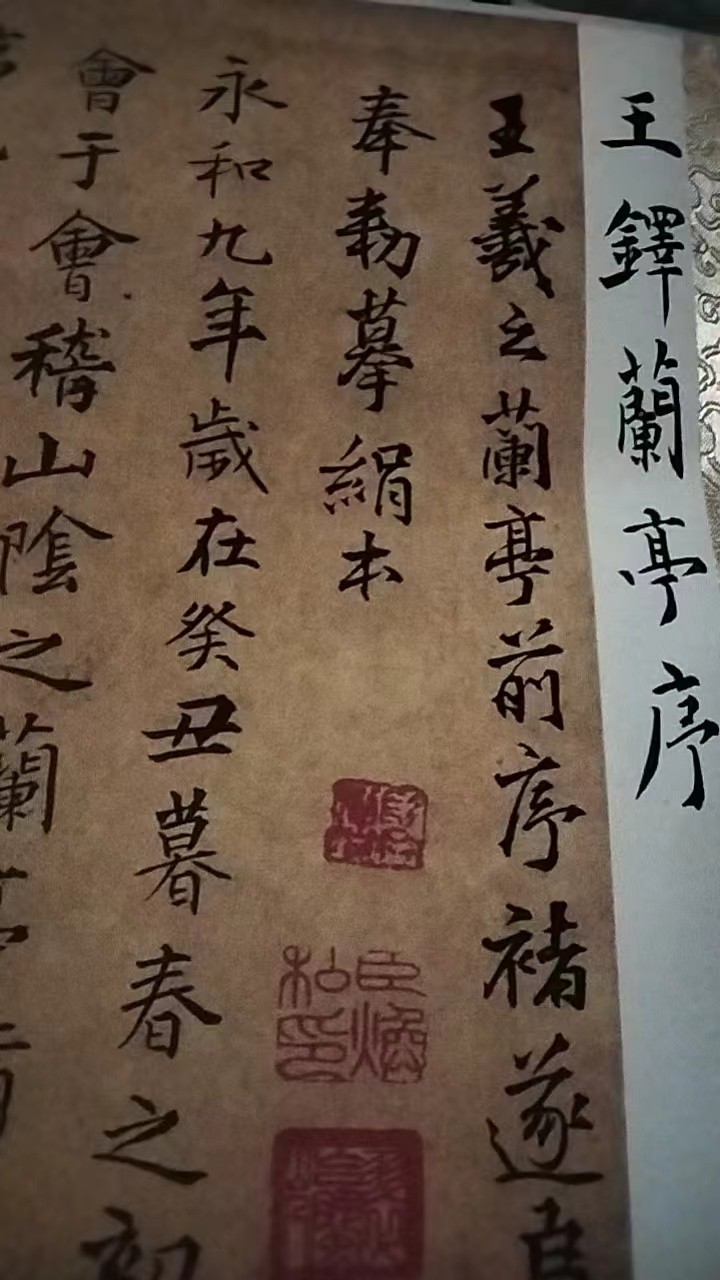 王鐸蘭亭序
王羲之蘭亭前序褚遂良
奉勅摹絹本
永和九年歲在癸丑暮春之初
會于會稽山陰之蘭亭